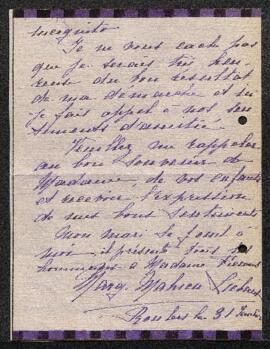 Je ne vous cache pas
que je serais très heu
reuse du bon résultat
de ma démarche et si
je fais appel à vos sen
timents d'amitié.
Veuillez me rappeler
au bon souvenir de
Madame, de vos enfants
et recevoir l'expression
de mes bons sentiments
Mon mari se joint à
moi et présente tous ses
hommages à Madame
Marg.
31